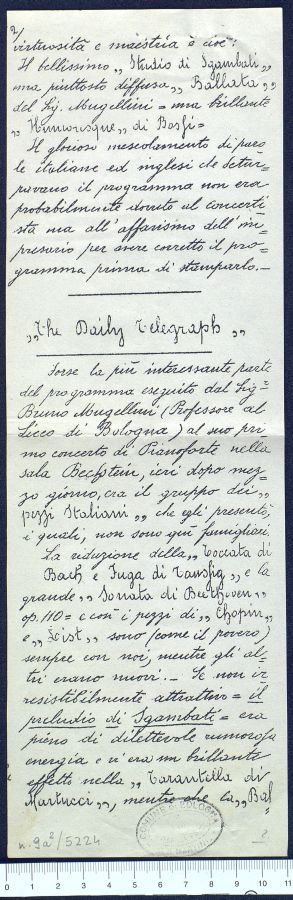 2/
virtuosità e maestria è cioè:
Il bellissimo „ Studio di Sgambati „
una piuttosto diffusa „ Ballata „
del Sig. Mugellini = una brillante
„ Humoresque „ di Bossi =
Il glorioso mescolamento di paro
le italiane ed inglesi che detur=
pavano il programma non era
probabilmente dovuto al concerti
sta ma all'affarismo dell'im=
presario per avere corretto il pro=
gramma prima di stamparlo. —
„ The Daily Telegraph „
Forse la più interessante parte
del programma eseguito dal Sig=
Bruno Mugellini (Professore al
Liceo di Bologna) al suo pri
mo concerto di Pianoforte nella
sala Bechstein, ieri dopo mez=
zo giorno, era il gruppo dei „
pezzi Italiani „ che egli presentò,
i quali, non sono qui famigliari.
La riduzione della „ Toccata di
Bach e Fuga di Tausig „ e la
grande „ Sonata di Beethoven „
op. 110 = e con i pezzi di „ Chopin „
e „ Leist „ sono (come il povero)
sempre con noi, mentre gli al=
tri erano nuovi. — Se non ir
resistibilmente attrattivo = il
preludio di Sgambati = era
pieno di dilettevole rumorosa
energia e vi era un brillante
effetto nella „ Tarantella di
Martucci „, mentre che la „ Bal
n. 9a²/5224
COMUNE BOLOGNA
2
0 1 2 3 4 5 6 7 8 9 10 11